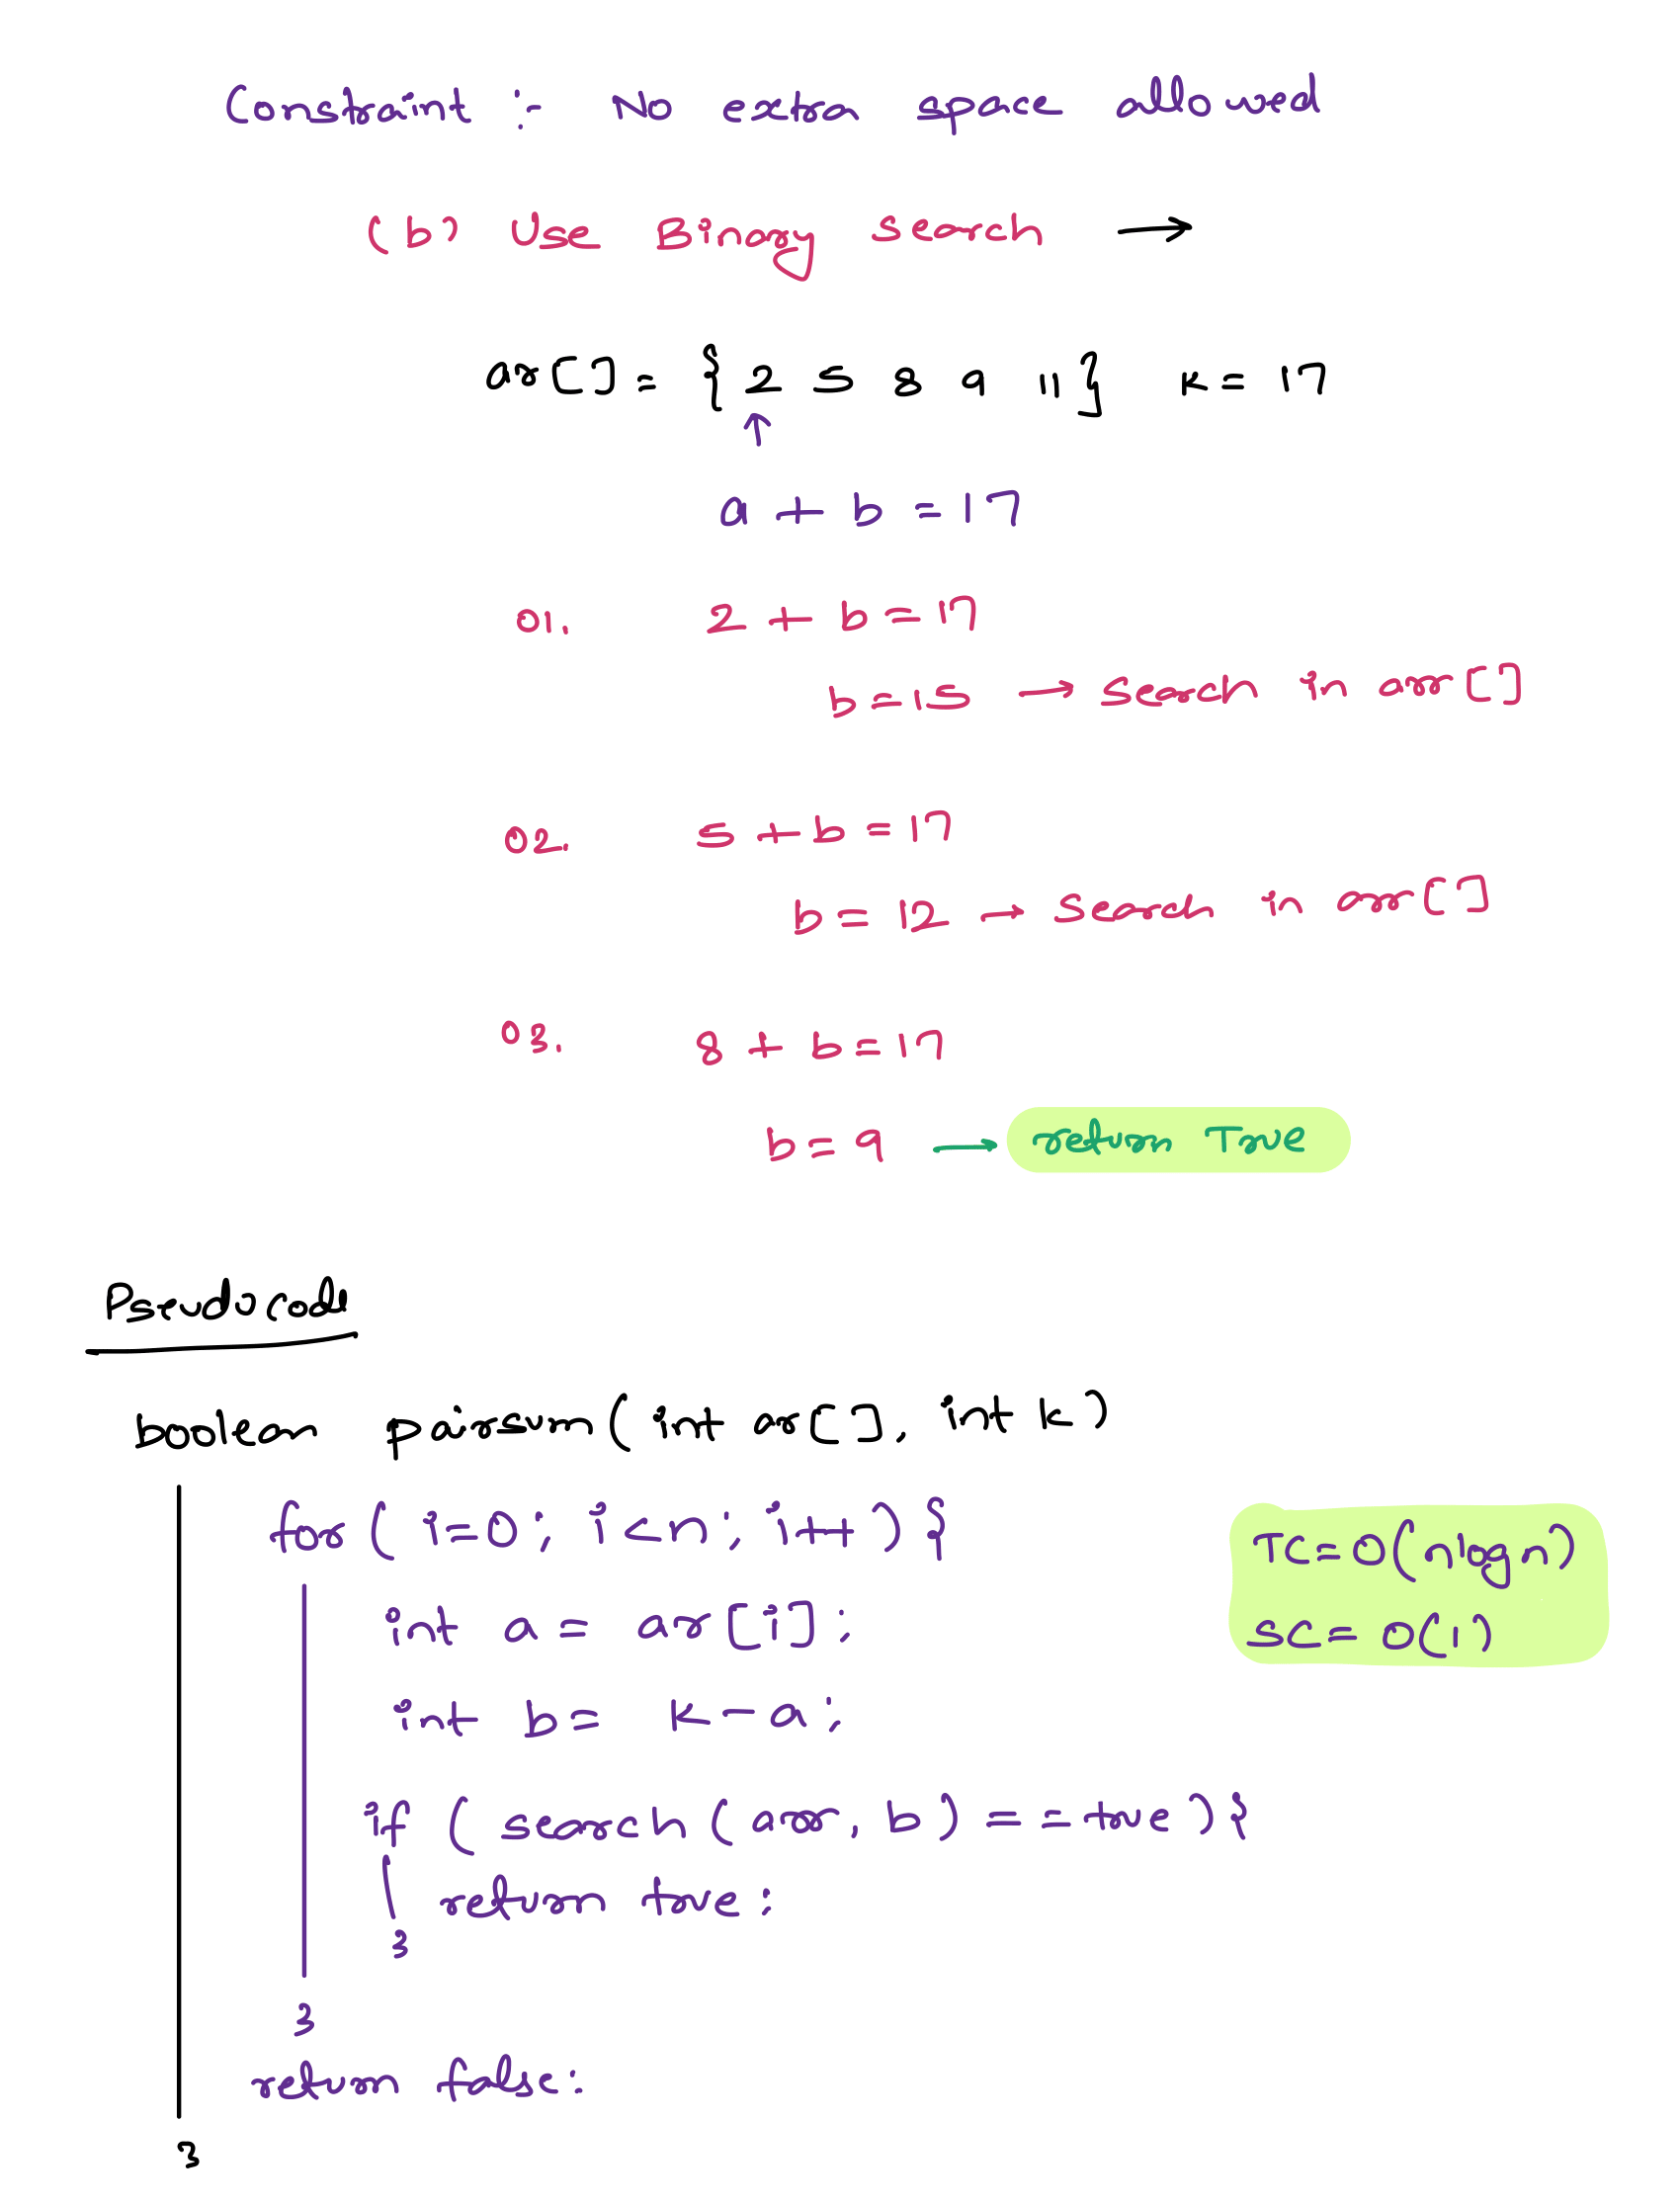 Constraint :- No extra space allowed
(b) Use Binary Search →
ar[] = {2 5 8 9 11} K = 17
↑
a + b = 17
01. 2 + b = 17
b = 15 → Search in arr[]
02. 5 + b = 17
b = 12 → Search in arr[]
03. 8 + b = 17
b = 9 → return True
Pseudocode
boolean pairsum(int ar[], int k)
for( i=0; i<n; i++ ){
int a = ar[i];
TC = O(nlogn)
SC = O(1)
int b = k-a;
if ( search(arr, b) == true ){
return true;
}
}
return false;
}